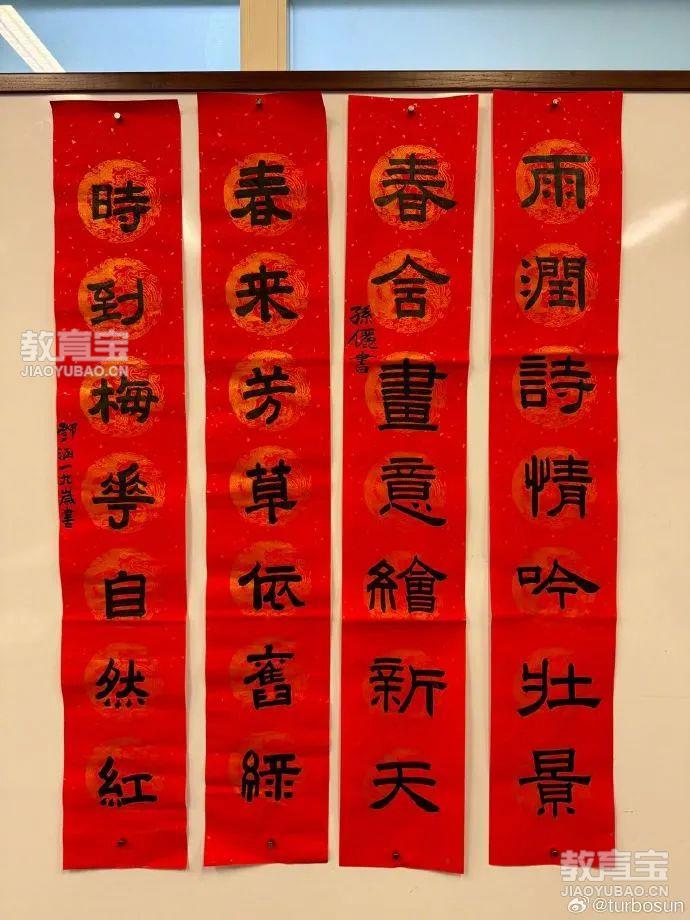 雨潤詩情吟壯景
春含畫意繪新天
孫儷書
春来芳草依舊綠
時到梅華自然紅
鄧涵一九歲書
教育宝
JIAOYUBAO.CN
教育宝
JIAOYUBAO.CN
@turbosun